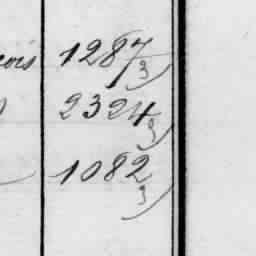 1287
3)
2324
3)
1082
3)